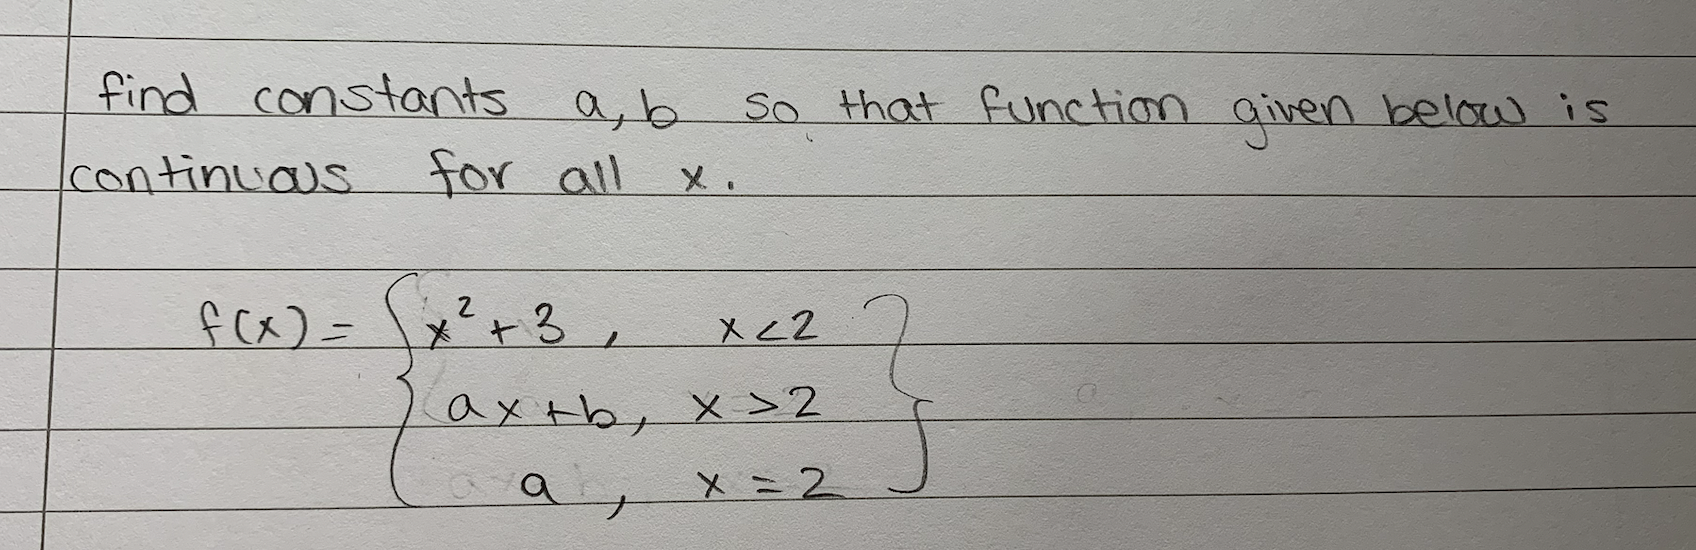 find constants a, b so that function given below is
continuous for all x.
f(x) = { x² + 3 , x < 2 }
ax + b, x > 2
a , x = 2